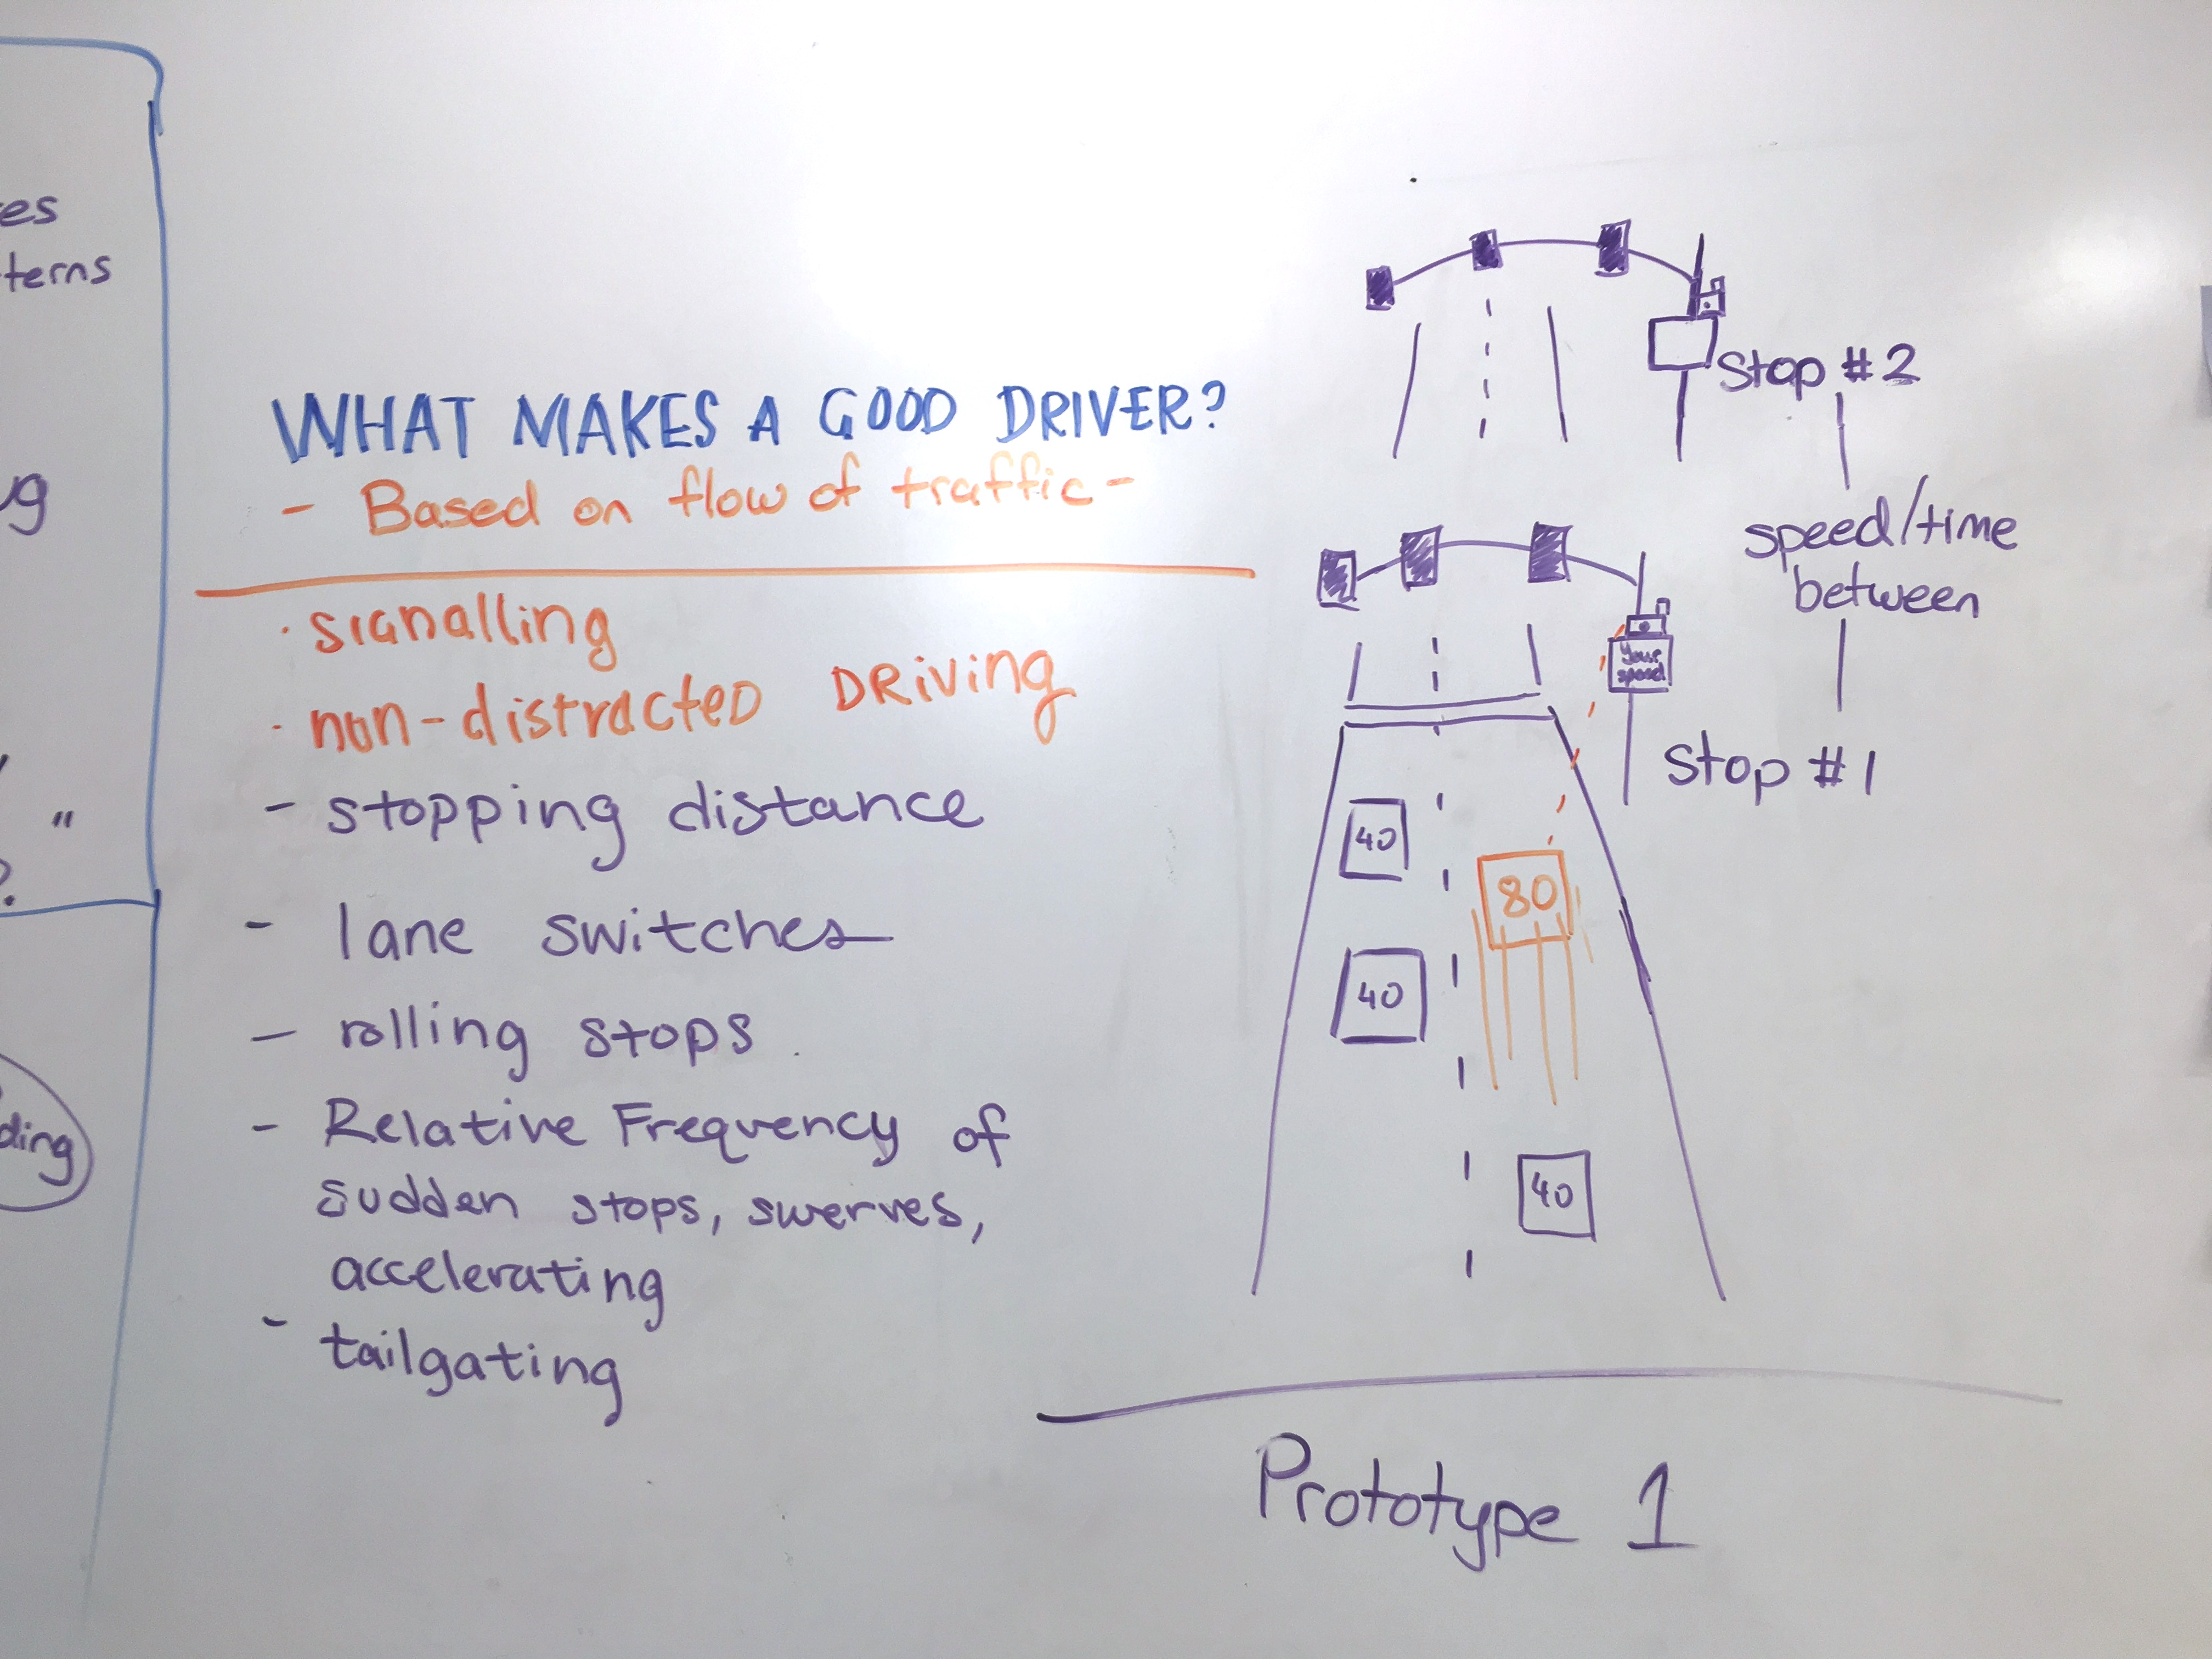 es
terns
g
"
ding
WHAT MAKES A GOOD DRIVER?
- Based on flow of traffic -
· signalling
· non-distracted DRiving
- stopping distance
- lane switches
- rolling stops
- Relative Frequency of
sudden stops, swerves,
accelerating
- tailgating
Stop #2
speed/time
between
Your
speed
Stop #1
40
80
40
40
Prototype 1